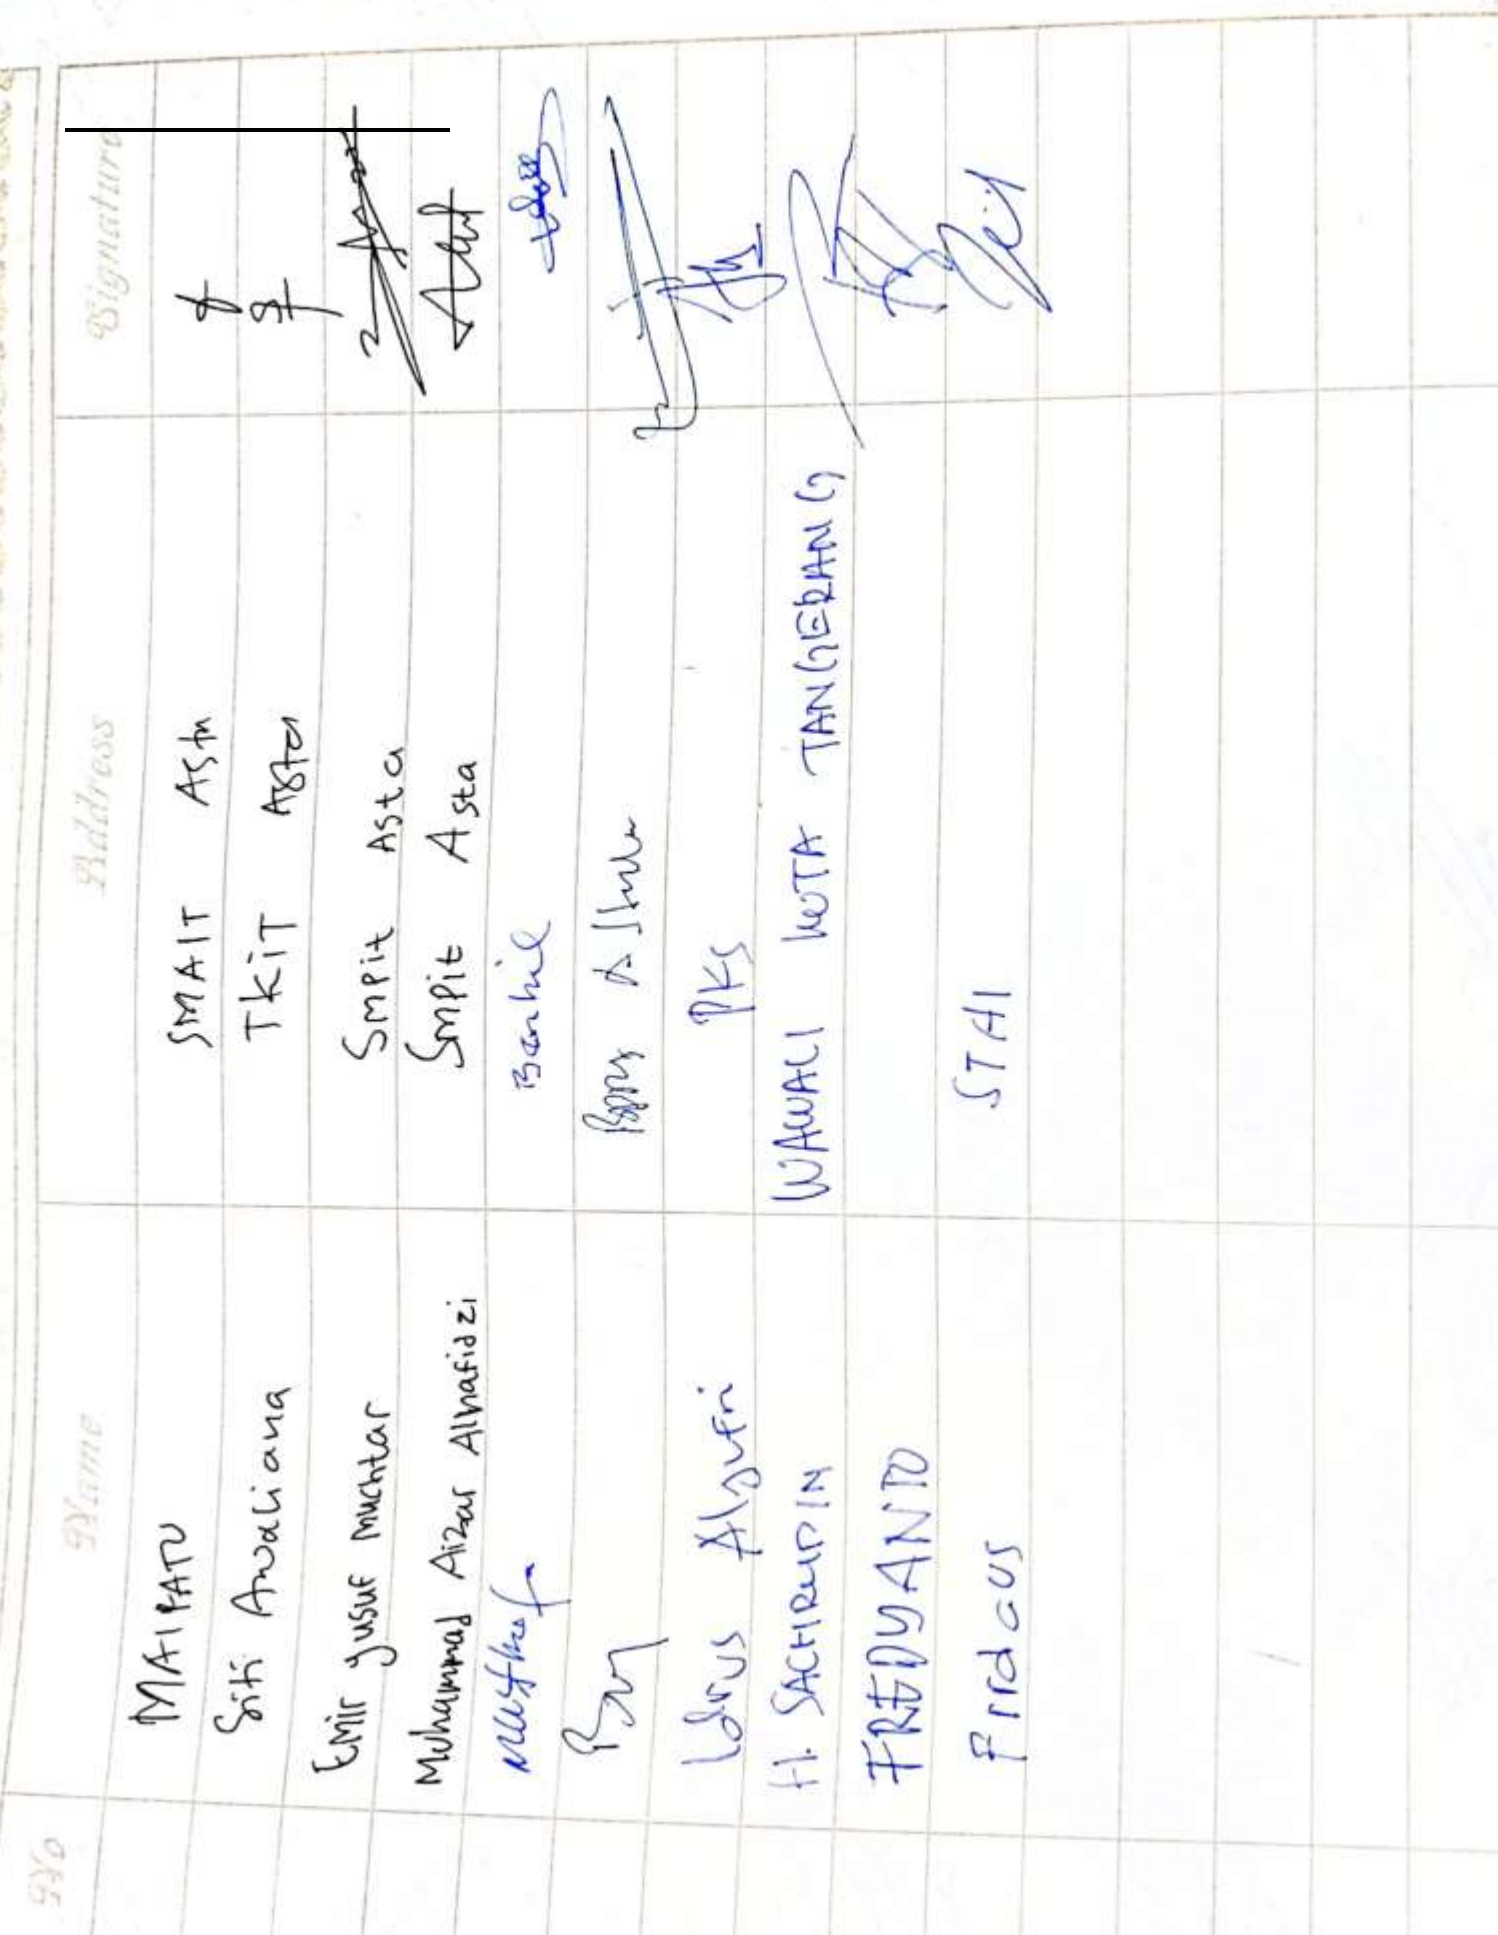 No Name Address Signature
MAIPATU SMAIT Asta
Siti Awaliana TKIT Asta
Emir Yusuf Muchtar SMPit Asta
Muhammad Aizar Alhafidzi SMPit Asta
Idrus Aljufri PKS
H. SACHRUDIN WAWALI KOTA TANGERANG
FREDYANTO
Firdaus STAI